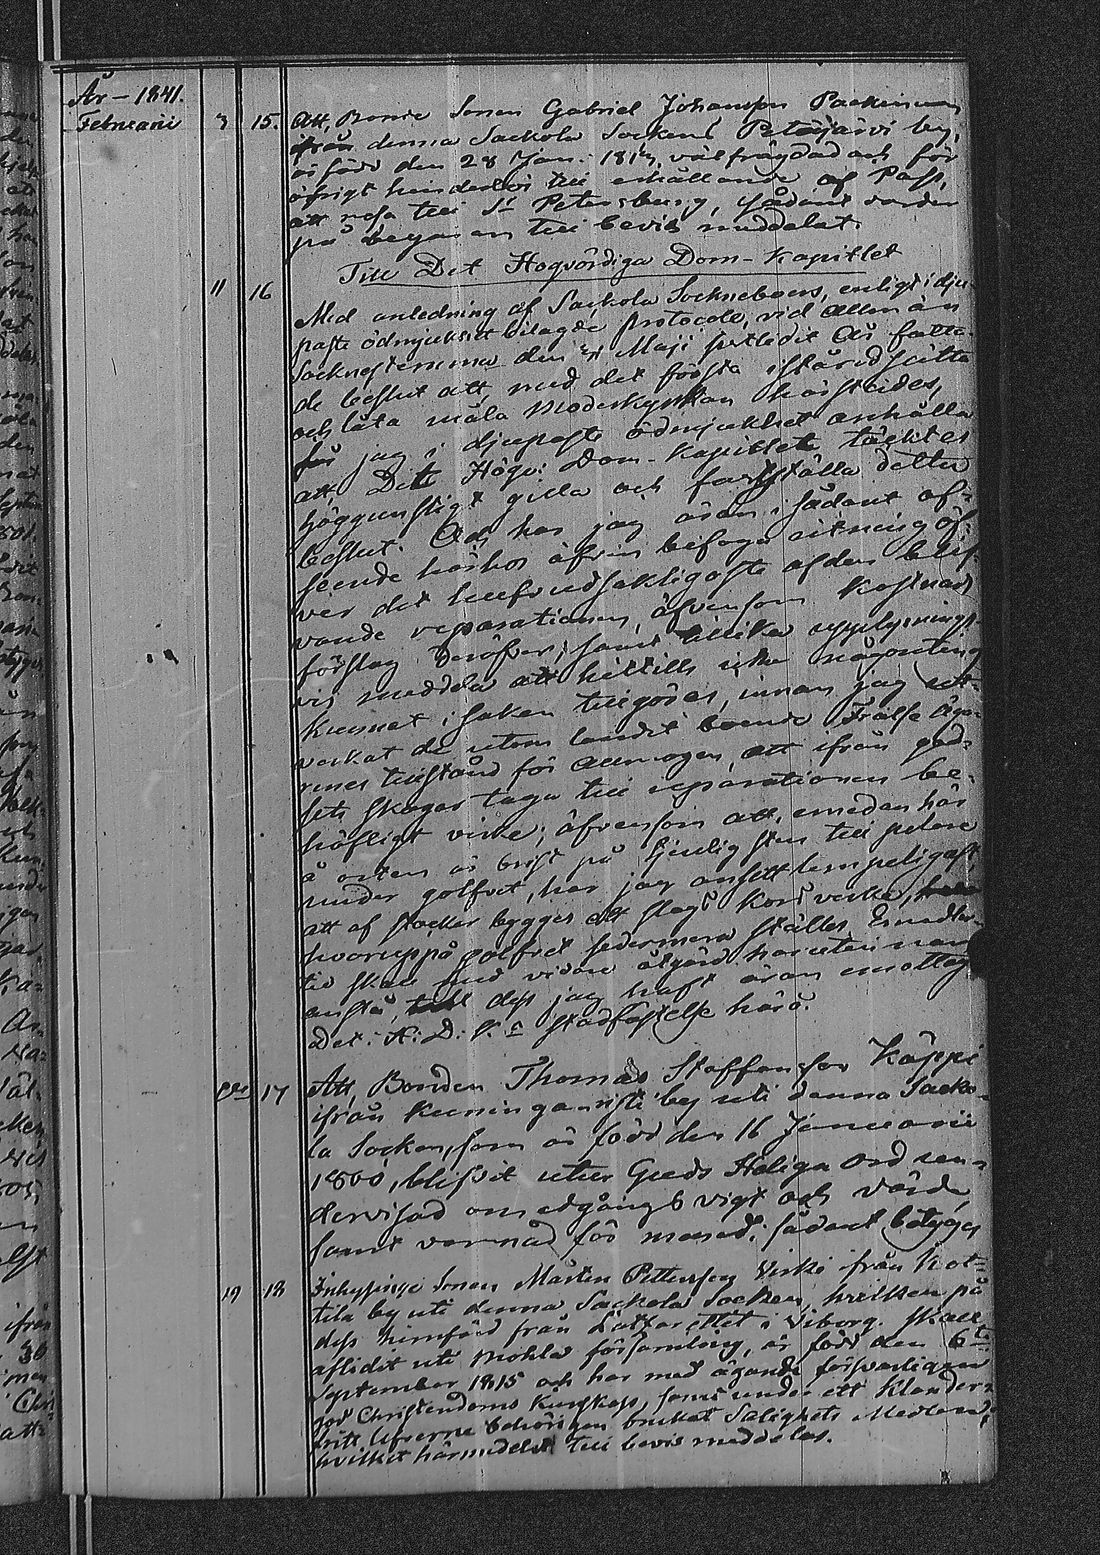 År – 1841.
Februarii 3 15. Att, Bonde Sonen Gabriel Johansson Packainen
ifrån denna Sackola Sockens Petäjärvi by,
är född den 28 Jan. 181, välfrägdad och för
öfrigt hinderlös till erhållande af Pass,
att resa till St Petersburg, sådant varder
på begäran till bevis meddelat.
Till Det Högvördiga Dom-Kapitlet
11 16 Med anledning af Sackola Sockneboers, enligt i dju-
paste ödmjukhet bilagde Protocoll, vid allmän
Sockne stemma den Maji sistledit År fatta-
de beslut att, med det första iståndsätta
och låta måla Moderkyrkan härstädes,
får jag i djupaste ödmjukhet anhålla
att Dett Högv: Dom-Kapitlet täcktes
höggunstigt gilla och fastställa detta
beslut. Och har jag äran i sådant af-
seende härhos äfven bifoga ritning öf-
ver det hufvudsakligaste af den blif-
vande reparationen, äfvensom Kostnads
förslag deröfver; samt tillika upplysnings-
vis meddela att hittills icke någonting
kunnat i saken tillgöras, innan jag ut-
verkat de utom landet boende Frälse äga-
renes tillstånd för Allmogen, att ifrån god-
sets skogar taga till reparationen be-
höfligt virke; äfvensom att, emedan här
å orten är brist på tjenlig sten till pelare
under golfvet, har jag ansett lämpeligast
att af stockar bygges ett slags kors verke,
hvaruppå golfvet sedermera ställes. Emedler-
tid skall med vidare åtgärd härutinnan
anstå, dess jag haft äran emottaga
Det: H: D: K:s stadfästelse härå.
17 Att, Bonden Thomas Staffansson Käppi
ifrån Kuninganristi by uti denna Sacko-
la Socken, som är född den 16 Januarii
1800, blifvit utur Guds Heliga Ord un-
dervisad om edgångs vigt och värde,
samt varnad för mened; sådant betygas
19 18 Inhysings Sonen Mårten Pettersson Virki från Kot-
tila by uti denna Sackola Socken, hvilken på
dess hemfärd från Lazarettet i Viborg. skall
aflidit uti Mohla församling, är född den 6te
September 1815 och har med ägande försvarlig
god Christendoms Kunskap, samt under ett klander-
fritt lefverne behörigen brukat Salighets Medlen;
hvilket härmedelst till bevis meddelas.